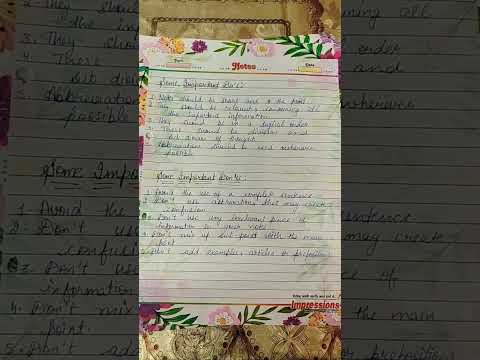 Date
Notes
Date
Some Important Do's:
1. Note should be short and to the point
2. They should be containing all
the important information.
3. They should in a logical order
4. There should be division and
sub division
5. Abbreviation should be used wherever
possible
Some Important Don'ts:
1. Avoid the use of a complete sentence
2. Don't use abbreviations that may create
confusion
3. Don't use any irrelevant piece of
information in your note
4. Don't mix up sub point with the main
point.
5. Don't add examples, articles or preposition
Impressions